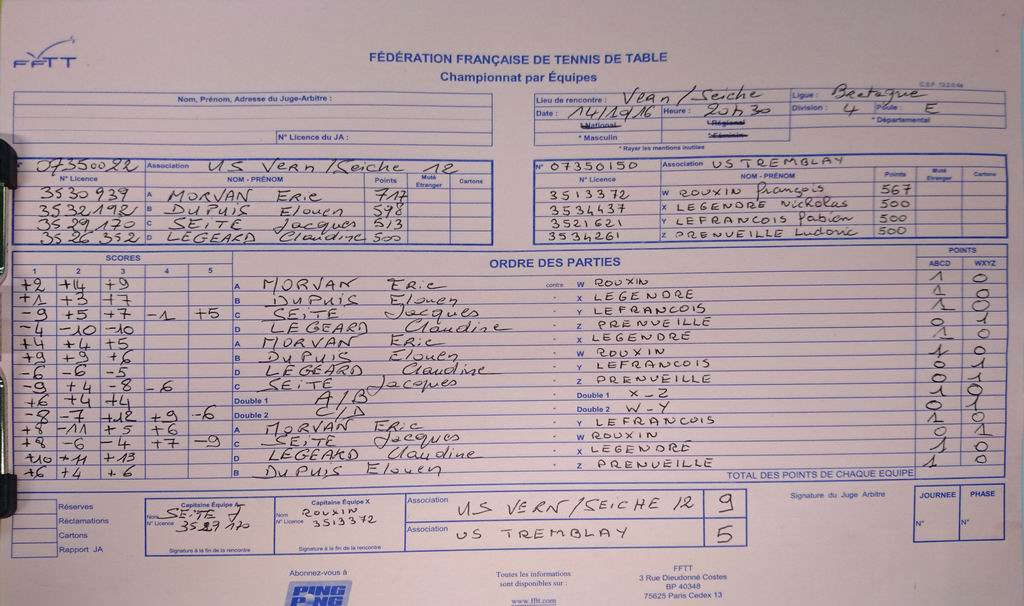 FFTT
FÉDÉRATION FRANÇAISE DE TENNIS DE TABLE
Championnat par Équipes
Nom, Prénom, Adresse du Juge-Arbitre :
N° Licence du JA :
Lieu de rencontre : Vern/Seiche Ligue : Bretagne
Date : 14/1916 Heure : 20h30 Division : 4 Poule : E
National Régional * Départemental
* Masculin Féminin
* Rayer les mentions inutiles
07350022 Association US Vern/Seiche 12
N° Licence NOM - PRÉNOM Points Muté Etranger Cartons
3530939 A MORVAN Eric 717
3532192 B DUPUIS Elouen 598
3529170 C SEITE Jacques 513
3526352 D LEGEARD Claudine 500
N° 07350150 Association US TREMBLAY
N° Licence NOM - PRÉNOM Points Muté Etranger Cartons
3513372 W ROUXIN François 567
3534437 X LEGENDRE Nickolas 500
3521621 Y LEFRANCOIS Fabien 500
3534261 Z PRENUEILLE Ludovic 500
SCORES ORDRE DES PARTIES POINTS
1 2 3 4 5 ABCD WXYZ
+2 +14 +9 A MORVAN Eric contre W ROUXIN 1 0
+1 +3 +7 B DUPUIS Elouen - X LEGENDRE 1 0
-9 +5 +7 -1 +5 C SEITE Jacques - Y LEFRANCOIS 1 0
-4 -10 -10 D LEGEARD Claudine - Z PRENUEILLE 0 1
+4 +4 +5 A MORVAN Eric - X LEGENDRE 1 0
+9 +9 +6 B DUPUIS Elouen - W ROUXIN 1 0
-6 -6 -5 D LEGEARD Claudine - Y LEFRANCOIS 0 1
-9 +4 -8 -6 C SEITE Jacques - Z PRENUEILLE 0 1
+6 +4 +4 Double 1 A/B - Double 1 X-Z 1 0
-8 -7 +12 +9 -6 Double 2 C/D - Double 2 W-Y 0 1
+8 -11 +5 +6 A MORVAN Eric - Y LEFRANCOIS 1 0
+8 -6 -4 +7 -9 C SEITE Jacques - W ROUXIN 0 1
+10 +11 +13 D LEGEARD Claudine - X LEGENDRE 1 0
+6 +4 +6 B DUPUIS Elouen - Z PRENUEILLE 1 0
TOTAL DES POINTS DE CHAQUE EQUIPE
Réserves
Réclamations
Cartons
Rapport JA
Capitaine Équipe A
Nom SEITE J
N° Licence 3529170
Signature à la fin de la rencontre
Capitaine Équipe X
Nom ROUXIN
N° Licence 3513372
Signature à la fin de la rencontre
Association US VERN/SEICHE 12 9
Association US TREMBLAY 5
Signature du Juge Arbitre
JOURNEE PHASE
N° N°
Abonnez-vous à
PING PONG
Toutes les informations
sont disponibles sur :
www.fftt.com
FFTT
3 Rue Dieudonné Costes
BP 40348
75625 Paris Cedex 13